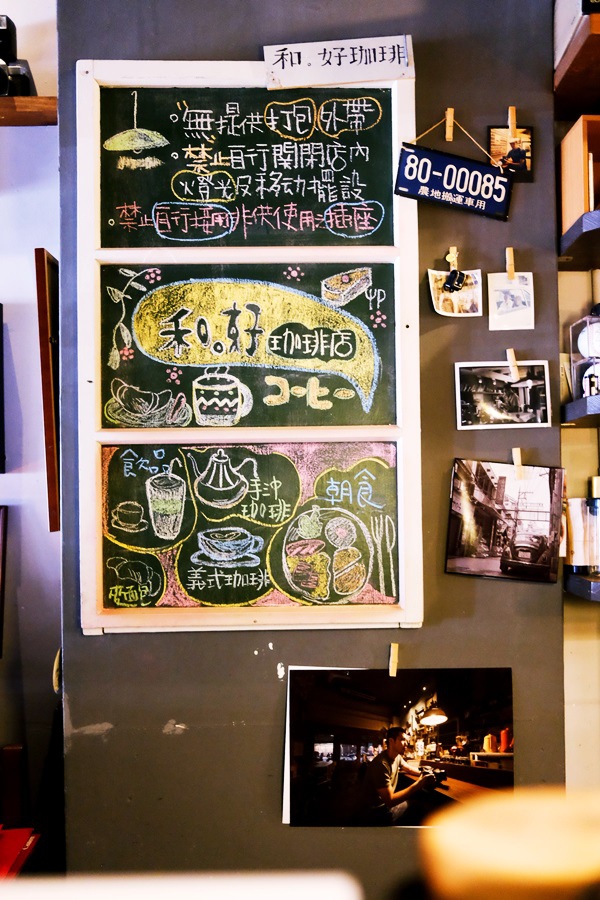 和。好珈琲
無提供打包外帶
禁止自行關閉店內
燈光及移动擺設
禁止自行接用非供使用之插座
80-00085
農地搬運車用
和。好珈琲店
コーヒー
飲品
手沖
珈琲
朝食
義式珈琲
麵包